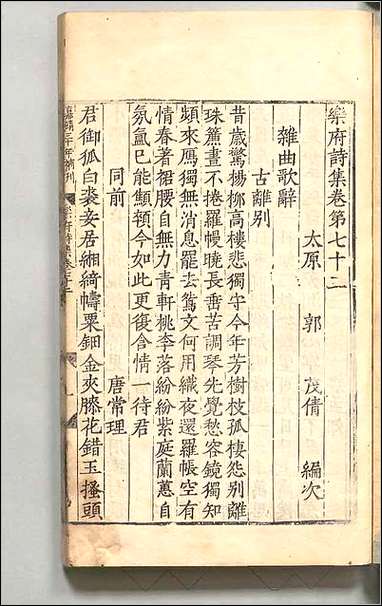 樂府詩集卷第七十二
太原 郭 茂倩 編次
雜曲歌辭
古離別
昔歲驚楊柳高樓悲獨守今年芳樹枝孤棲怨別離
珠簾晝不捲羅幔曉長垂苦調琴先覺愁容鏡獨知
頻來鴈獨無消息罷去鴛文何用織夜還羅帳空有
情春著裙腰自無力青軒桃李落紛紛紫庭蘭蕙自
氛氳已能顦顇今如此更復含情一待君
同前 唐常理
君御狐白裘妾居緗綺幬粟鈿金夾膝花錯玉搔頭